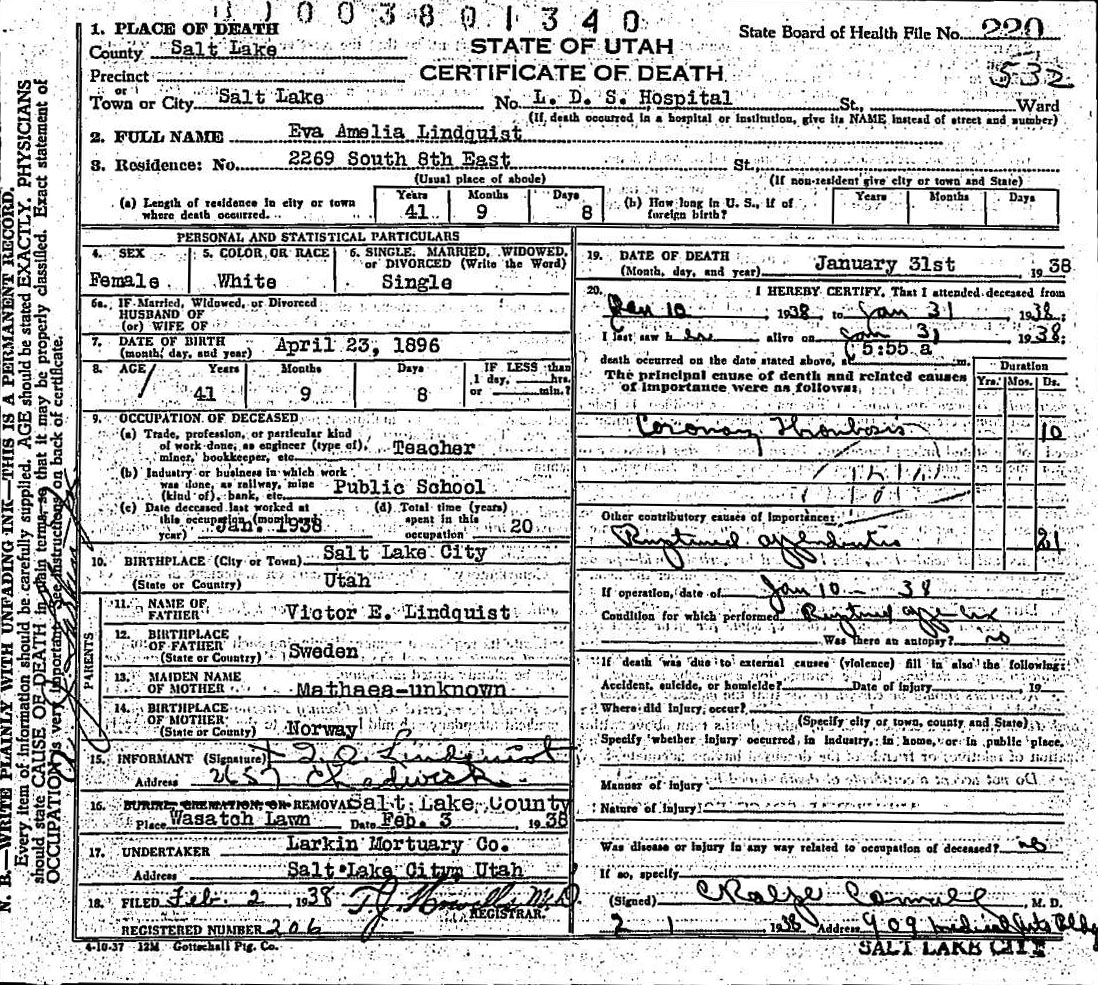 1003801340
1. PLACE OF DEATH
County Salt Lake
STATE OF UTAH
State Board of Health File No. 220
532
Precinct
CERTIFICATE OF DEATH
or
Town or City Salt Lake No. L. D. S. Hospital St., Ward
(If death occurred in a hospital or institution, give its NAME instead of street and number)
2. FULL NAME Eva Amelia Lindquist
3. Residence: No. 2269 South 8th East St.
(Usual place of abode) (If non-resident give city or town and State)
(a) Length of residence in city or town where death occurred. Years 41 Months 9 Days 8
(b) How long in U. S., if of foreign birth? Years Months Days
PERSONAL AND STATISTICAL PARTICULARS
4. SEX Female
5. COLOR OR RACE White
6. SINGLE, MARRIED, WIDOWED, or DIVORCED (Write the Word) Single
6a. IF Married, Widowed, or Divorced
HUSBAND OF
(or) WIFE OF
7. DATE OF BIRTH (month, day, and year) April 23, 1896
8. AGE Years 41 Months 9 Days 8
IF LESS than 1 day, hrs. or min.?
9. OCCUPATION OF DECEASED
(a) Trade, profession, or particular kind of work done, as engineer (type of), miner, bookkeeper, etc. Teacher
(b) Industry or business in which work was done, as railway, mine (kind of), bank, etc. Public School
(c) Date deceased last worked at this occupation (month and year) Jan. 1938
(d) Total time (years) spent in this occupation 20
10. BIRTHPLACE (City or Town) Salt Lake City
(State or Country) Utah
PARENTS
11. NAME OF FATHER Victor E. Lindquist
12. BIRTHPLACE OF FATHER (State or Country) Sweden
13. MAIDEN NAME OF MOTHER Mathaea-unknown
14. BIRTHPLACE OF MOTHER (State or Country) Norway
15. INFORMANT (Signature) Lindquist
Address 2657 Chadwick
16. BURIAL, CREMATION, OR REMOVAL Salt Lake County
Place Wasatch Lawn Date Feb. 3, 1938
17. UNDERTAKER Larkin Mortuary Co.
Address Salt Lake City Utah
18. FILED Feb. 2, 1938 M.D.
REGISTRAR.
REGISTERED NUMBER 206
4-10-37 12M Gottschall Ptg. Co.
19. DATE OF DEATH (Month, day, and year) January 31st, 1938
20. I HEREBY CERTIFY, That I attended deceased from
Jan 10, 1938, to Jan 31, 1938;
I last saw her alive on Jan 31, 1938;
death occurred on the date stated above, at 5:55 a m.
The principal cause of death and related causes of importance were as follows:
Duration
Yrs. Mos. Ds.
Coronary Thrombosis 10
Other contributory causes of importance:
Ruptured appendicitis 21
If operation, date of Jan 10 - 38
Condition for which performed Ruptured appendix
Was there an autopsy? no
If death was due to external causes (violence) fill in also the following:
Accident, suicide, or homicide? Date of injury , 19
Where did injury occur?
(Specify city or town, county and State)
Specify whether injury occurred in industry, in home, or in public place.
Manner of injury
Nature of injury
Was disease or injury in any way related to occupation of deceased? no
If so, specify
(Signed) , M. D.
2 1 1938 Address 909 Medical Arts Bldg
SALT LAKE CITY
N. B.—WRITE PLAINLY WITH UNFADING INK—THIS IS A PERMANENT RECORD.
Every item of information should be carefully supplied. AGE should be stated EXACTLY. PHYSICIANS
should state CAUSE OF DEATH in plain terms so that it may be properly classified. Exact statement of
OCCUPATION is very important. See instructions on back of certificate.